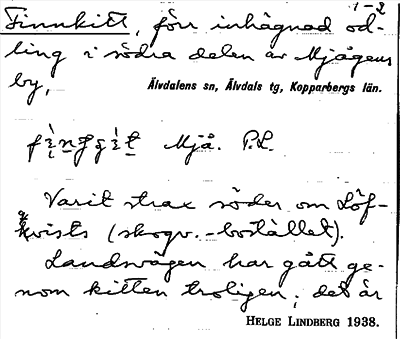 1-2
Finnkitt, förr inhägnad od-
ling i södra delen av Mjågens
by,
Älvdalens sn, Älvdals tg, Kopparbergs län.
Mjå. P.L.
Varit strax söder om Löf-
kvists (skogv.-bostället).
Landsvägen har gått ge-
nom kitten troligen; det är
HELGE LINDBERG 1938.